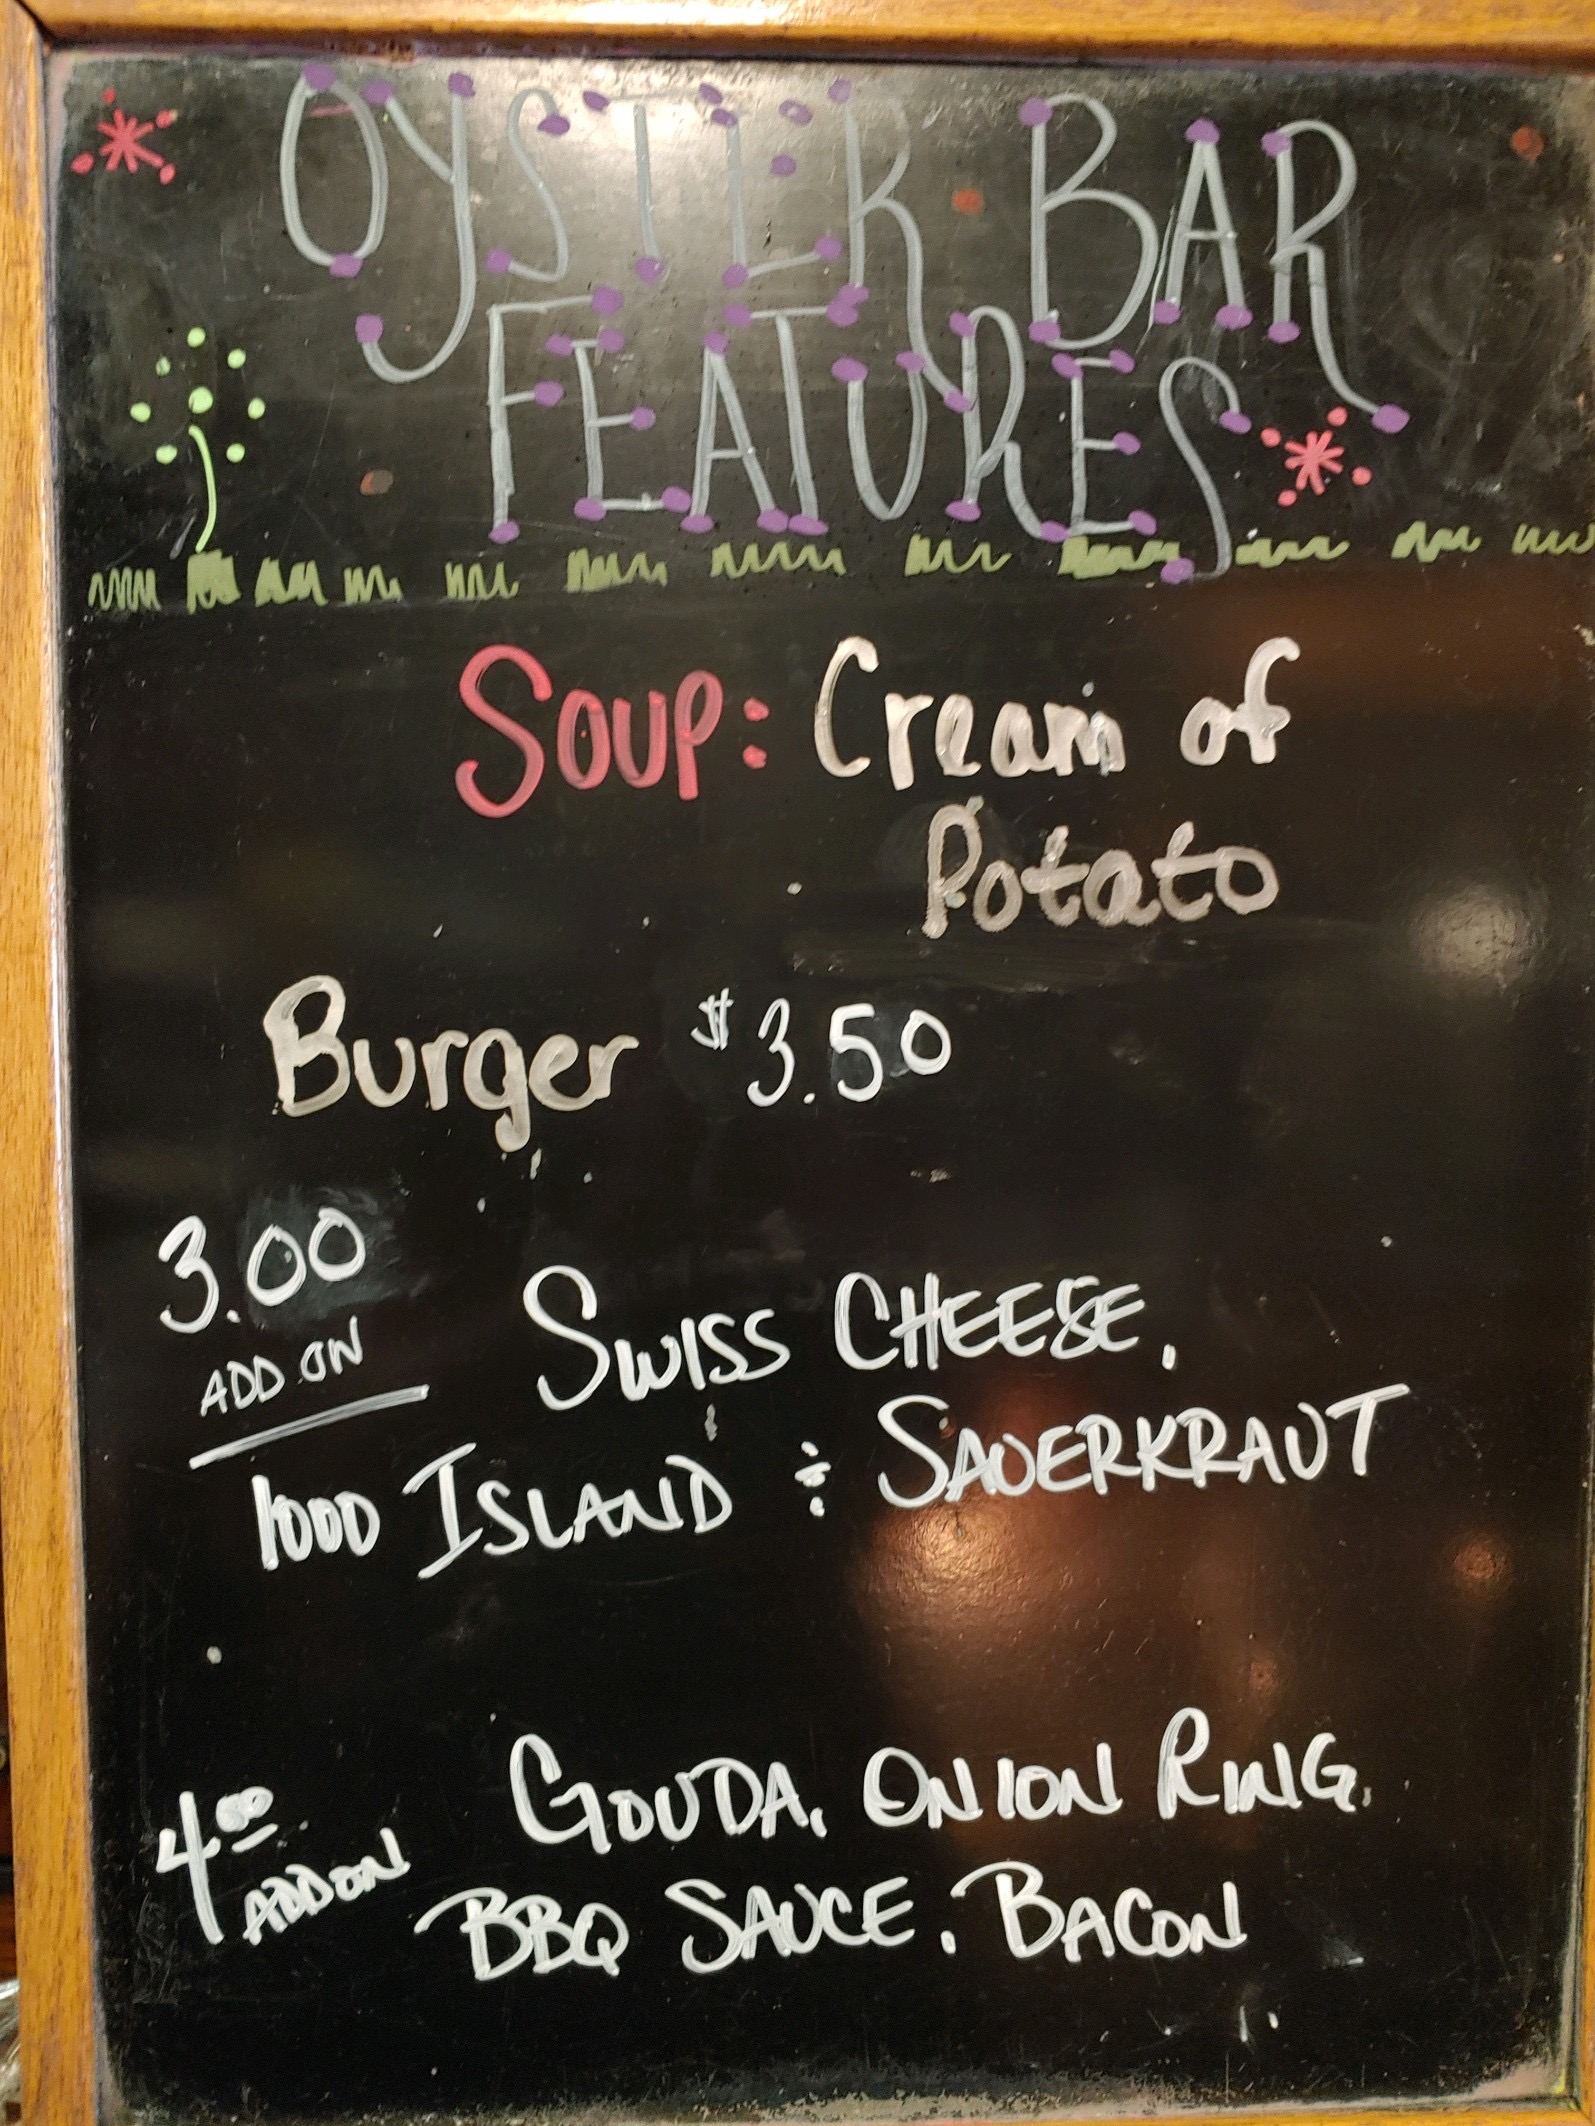 OYSTER BAR
FEATURES
SOUP: Cream of
Potato
Burger $3.50
3.00
ADD ON
SWISS CHEESE,
1000 ISLAND & SAUERKRAUT
4.00
ADD ON
GOUDA, ONION RING,
BBQ SAUCE, BACON